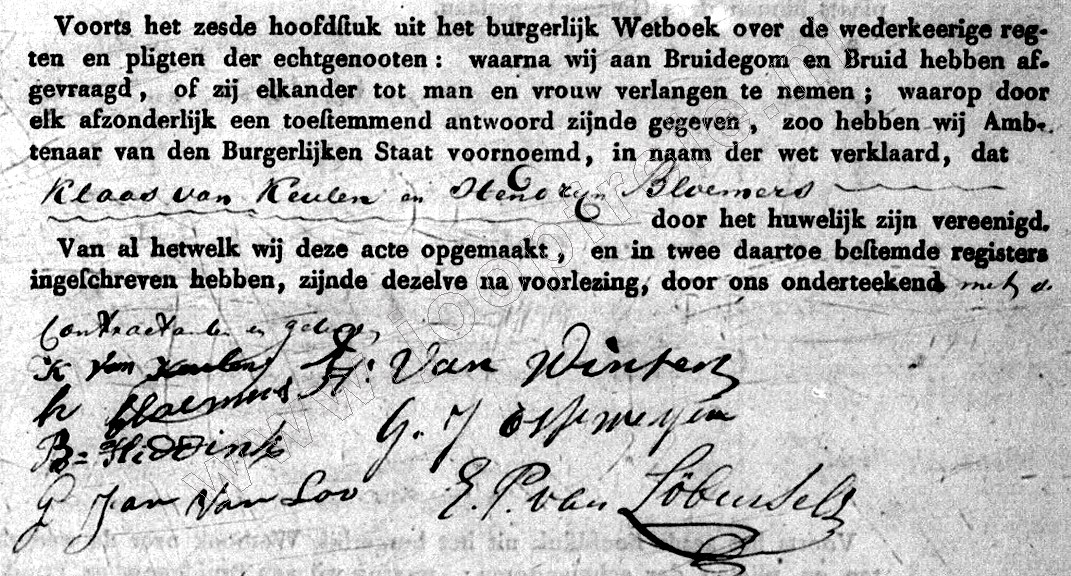 Voorts het zesde hoofdſtuk uit het burgerlijk Wetboek over de wederkeerige reg-
ten en pligten der echtgenooten: waarna wij aan Bruidegom en Bruid hebben af-
gevraagd, of zij elkander tot man en vrouw verlangen te nemen; waarop door
elk afzonderlijk een toeſtemmend antwoord zijnde gegeven, zoo hebben wij Amb-
tenaar van den Burgerlijken Staat voornoemd, in naam der wet verklaard, dat
Klaas van Keulen en Hendryn Bloemers
door het huwelijk zijn vereenigd.
Van al hetwelk wij deze acte opgemaakt, en in twee daartoe beſtemde registers
ingeſchreven hebben, zijnde dezelve na voorlezing, door ons onderteekend met de
Contractanten en getuigen
K van Keulen H: Van Winter
h bloemers G. J
B= Hiddink
G Jan Van Loo E. P. van